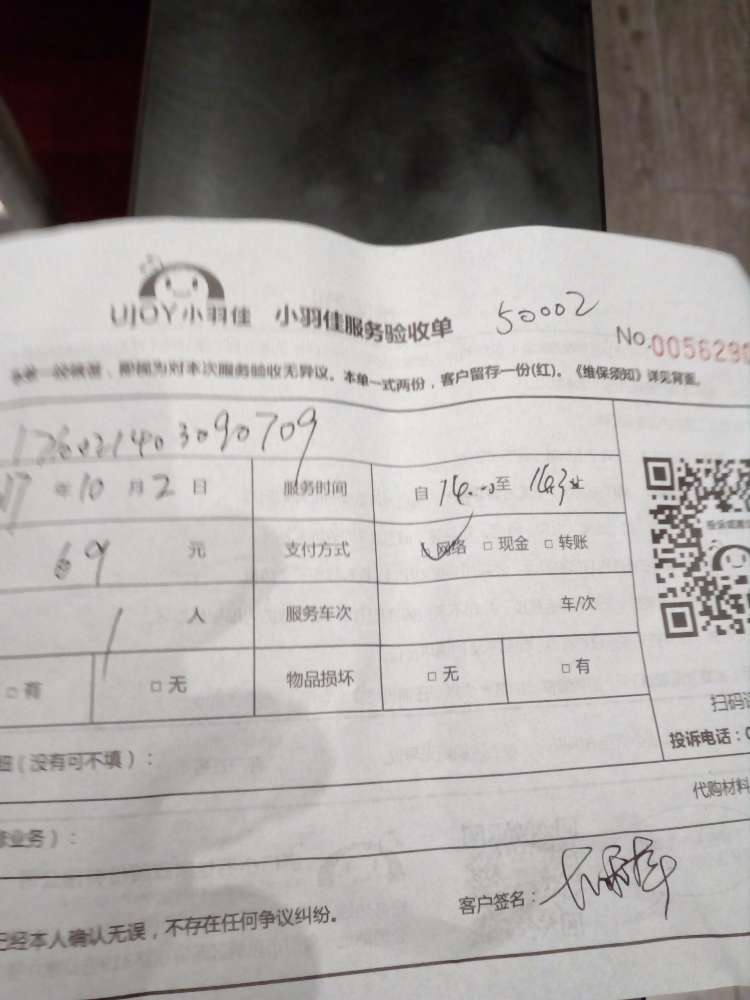 UJOY小羽佳 小羽佳服务验收单 50002
No.0056290
即视为对本次服务验收无异议。本单一式两份，客户留存一份(红)。《维保须知》详见背面。
126021403090709
17 年 10 月 2 日 服务时间 自 14:00 至 16:3
69 元 支付方式 网络 □ 现金 □ 转账
1 人 服务车次 车/次
□ 有 □ 无 物品损坏 □ 无 □ 有
扫码
投诉电话：0
（没有可不填）：
代购材料
业务）：
客户签名：
已经本人确认无误，不存在任何争议纠纷。